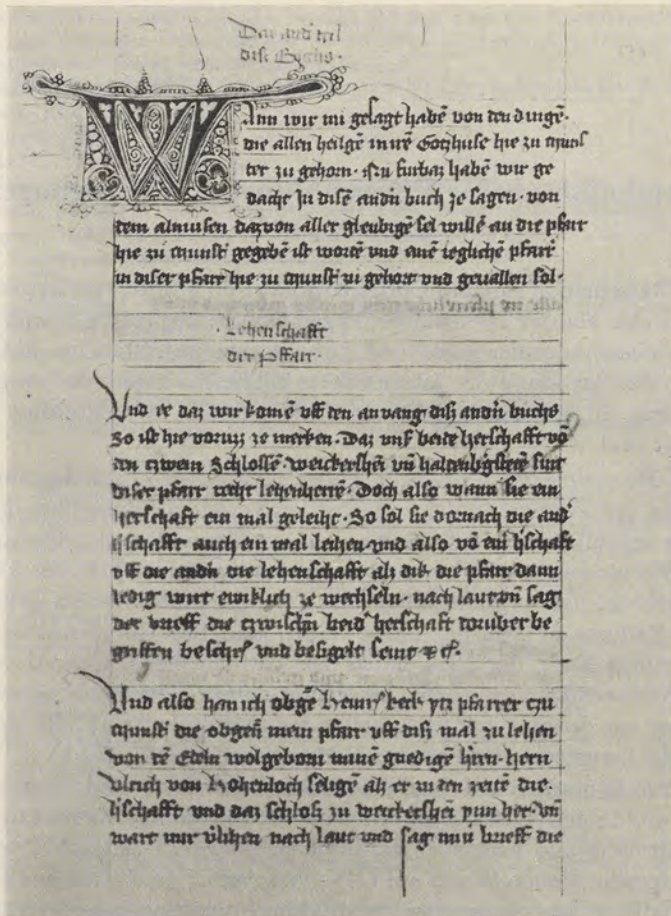 Daz and' teil
diß Buchs ·
Wann wir nu gesagt habē von den dingē ·
die allen heilgē in irē Gotzhuse hie zu
ter zu gehorn · fürbaz habē wir ge
dacht In disē andn̄ buch ze sagen · von
dem almusen daz von aller gleubigē sel willē an die pfarr
hie zu gegebē ist wordē und eynē ieglichē pfarr'
in diser pfarr hie zu gehort und geuallen sol ·
· Lehenschafft
der pffarr ·
Und ee daz wir komē vff den anvang diß andn̄ buchs
So ist hie voruz ze merken · Daz vns' beide herschafft vō
den tzwein Schlossē · weickershēi vn̄ haltenb'gstetē sint
diser pfarr recht lehenherrē · Doch also wann sie ein
herschaft ein mal geleiht · So sol sie dornach die and'
h'schafft auch ein mal leihen und also vō ein' h'schaft
vff die andn̄ die lehenschafft alz dik die pfarr dann
ledig wirt ewiklich ze wechseln · nach laut vn̄ sag
der brieff die tzwischn̄ beid' herschaft doruber be
griffen beschrib' und besigelt seint
Und also han ich obgē Heinr' keck ytz pfarrer tzu
die obgen̄ mein pfarr vff diß mal zu lehen
von dē Edeln wolgeborn minē gnedigē h'ren · hern
vlrich von Hohenloch seligē alz er in den zeitē die ·
h'schafft und daz schloß zu weickershēi ynn het · vn̄
wart mir v'lihen nach laut und sag mins brieff die